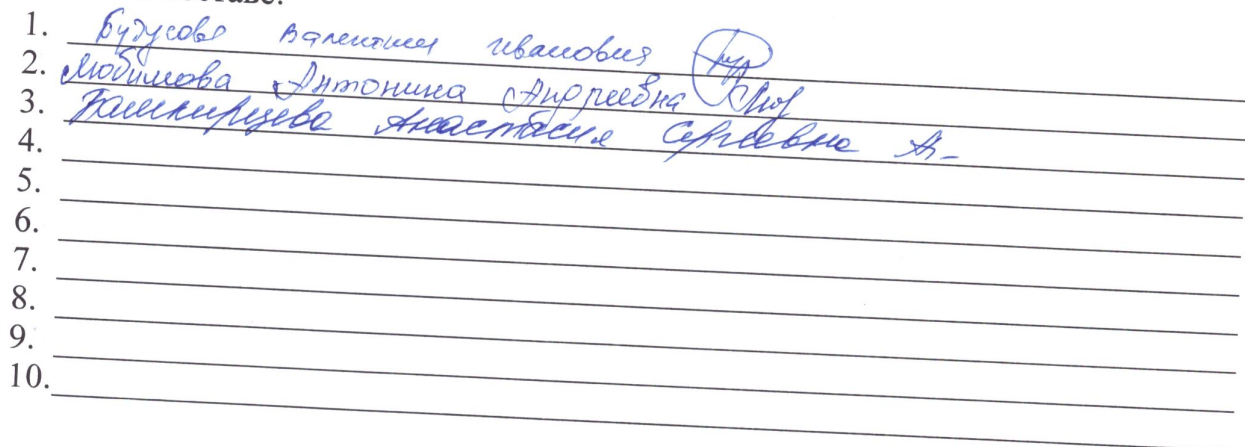 составе:
1. Бутусова Валентина Ивановна
2. Любимова Антонина Андреевна
3. Башкирцева Анастасия Сергеевна
4.
5.
6.
7.
8.
9.
10.